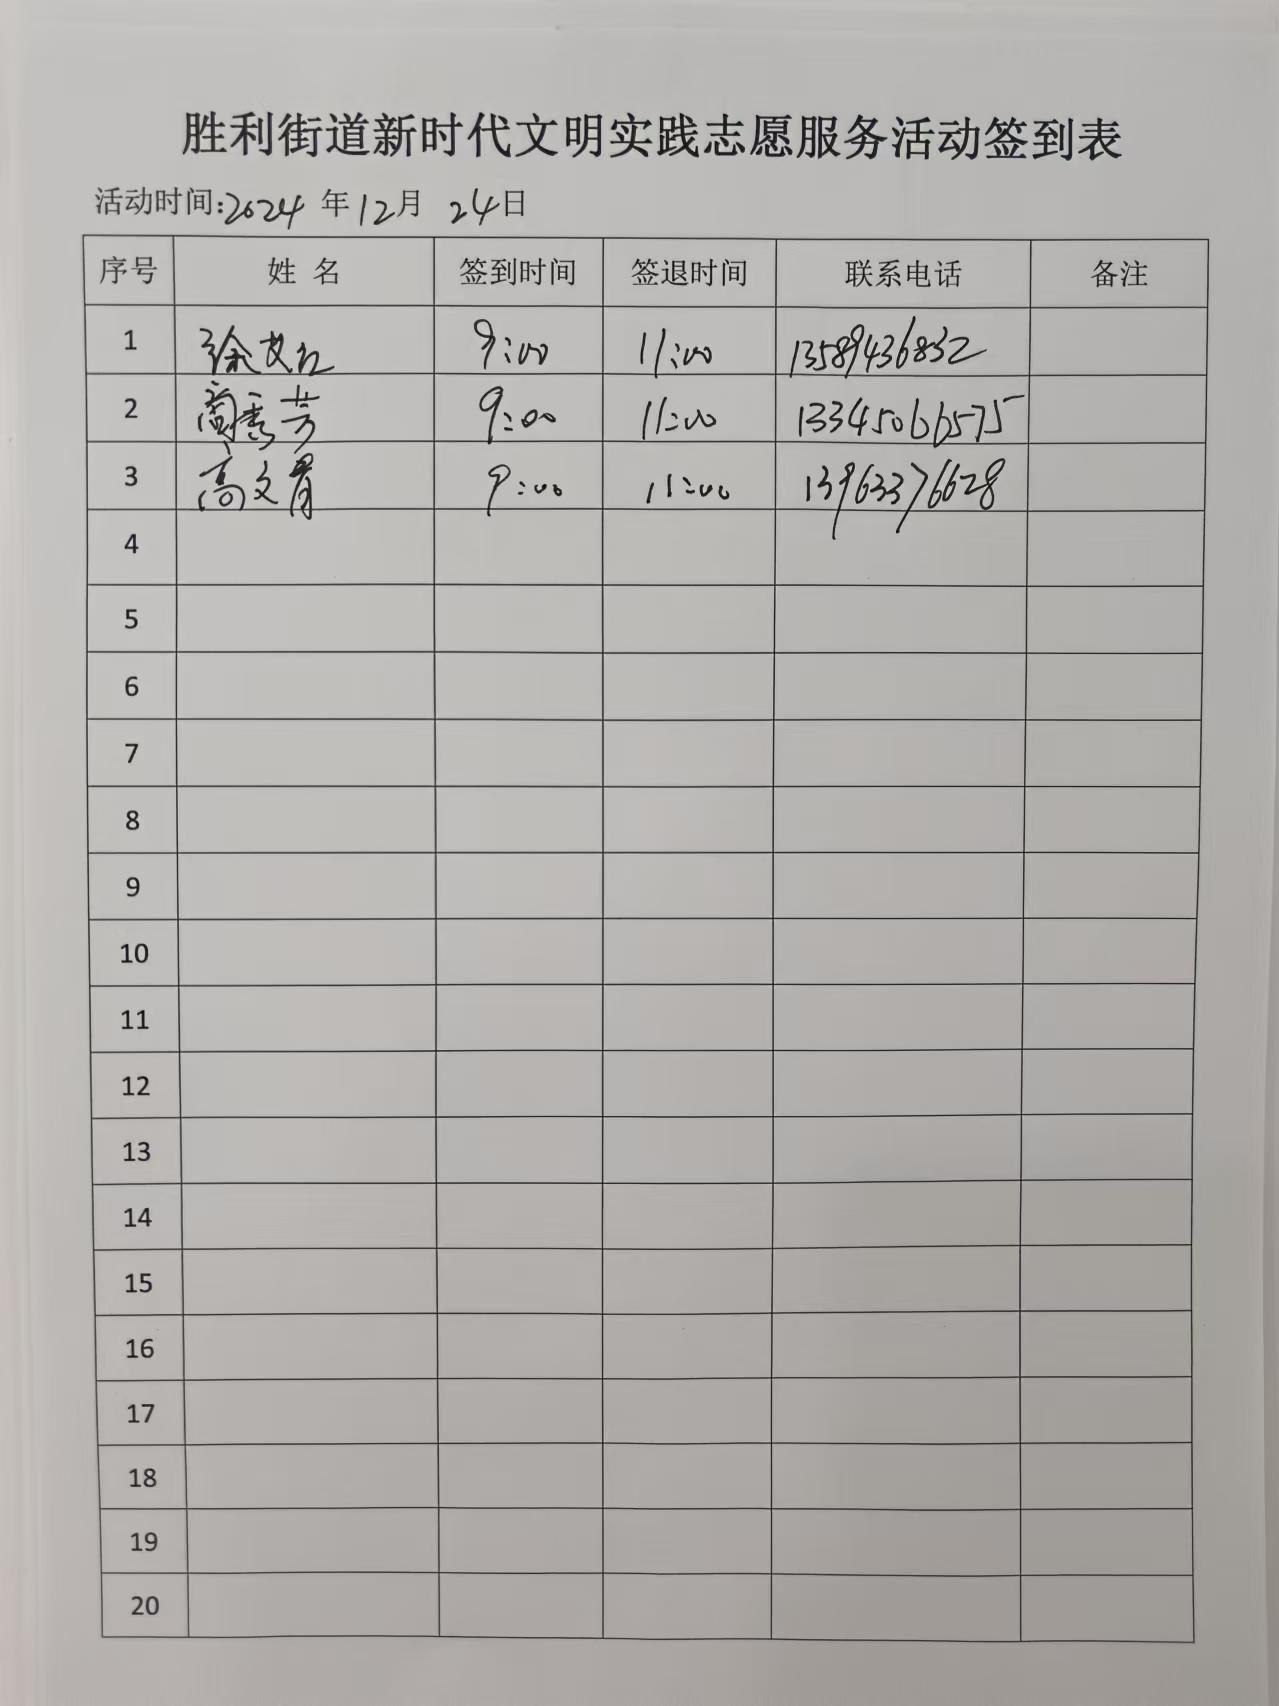 胜利街道新时代文明实践志愿服务活动签到表
活动时间:2024 年 12月 24日
序号 姓 名 签到时间 签退时间 联系电话 备注
1 徐 9:00 11:00 13589436832
2 秀芳 9:00 11:00 13345066575
3 高文青 9:00 11:00 13963376628
4
5
6
7
8
9
10
11
12
13
14
15
16
17
18
19
20